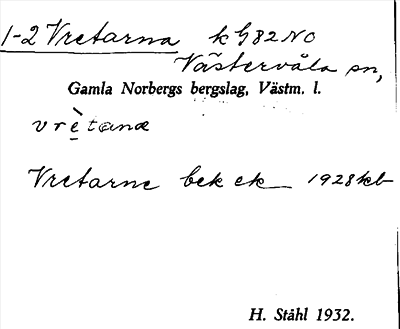 1-2 Vretarna k G82NO
Västervåla sn,
Gamla Norbergs bergslag, Västm. l.
vrètana
Vretarne bek ek 1928 kb
H. Ståhl 1932.